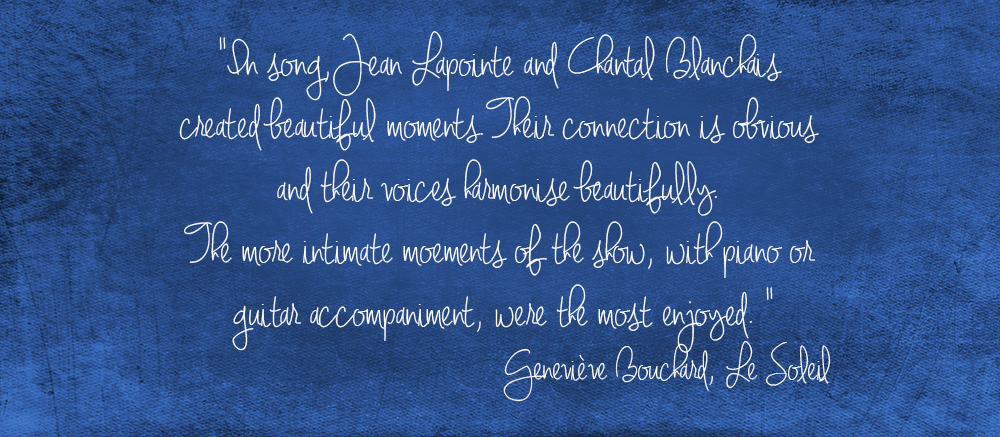 "In song, Jean Lapointe and Chantal Blanchais
created beautiful moments. Their connection is obvious
and their voices harmonise beautifully.
The more intimate moements of the show, with piano or
guitar accompaniment, were the most enjoyed."
Geneviève Bouchard, Le Soleil